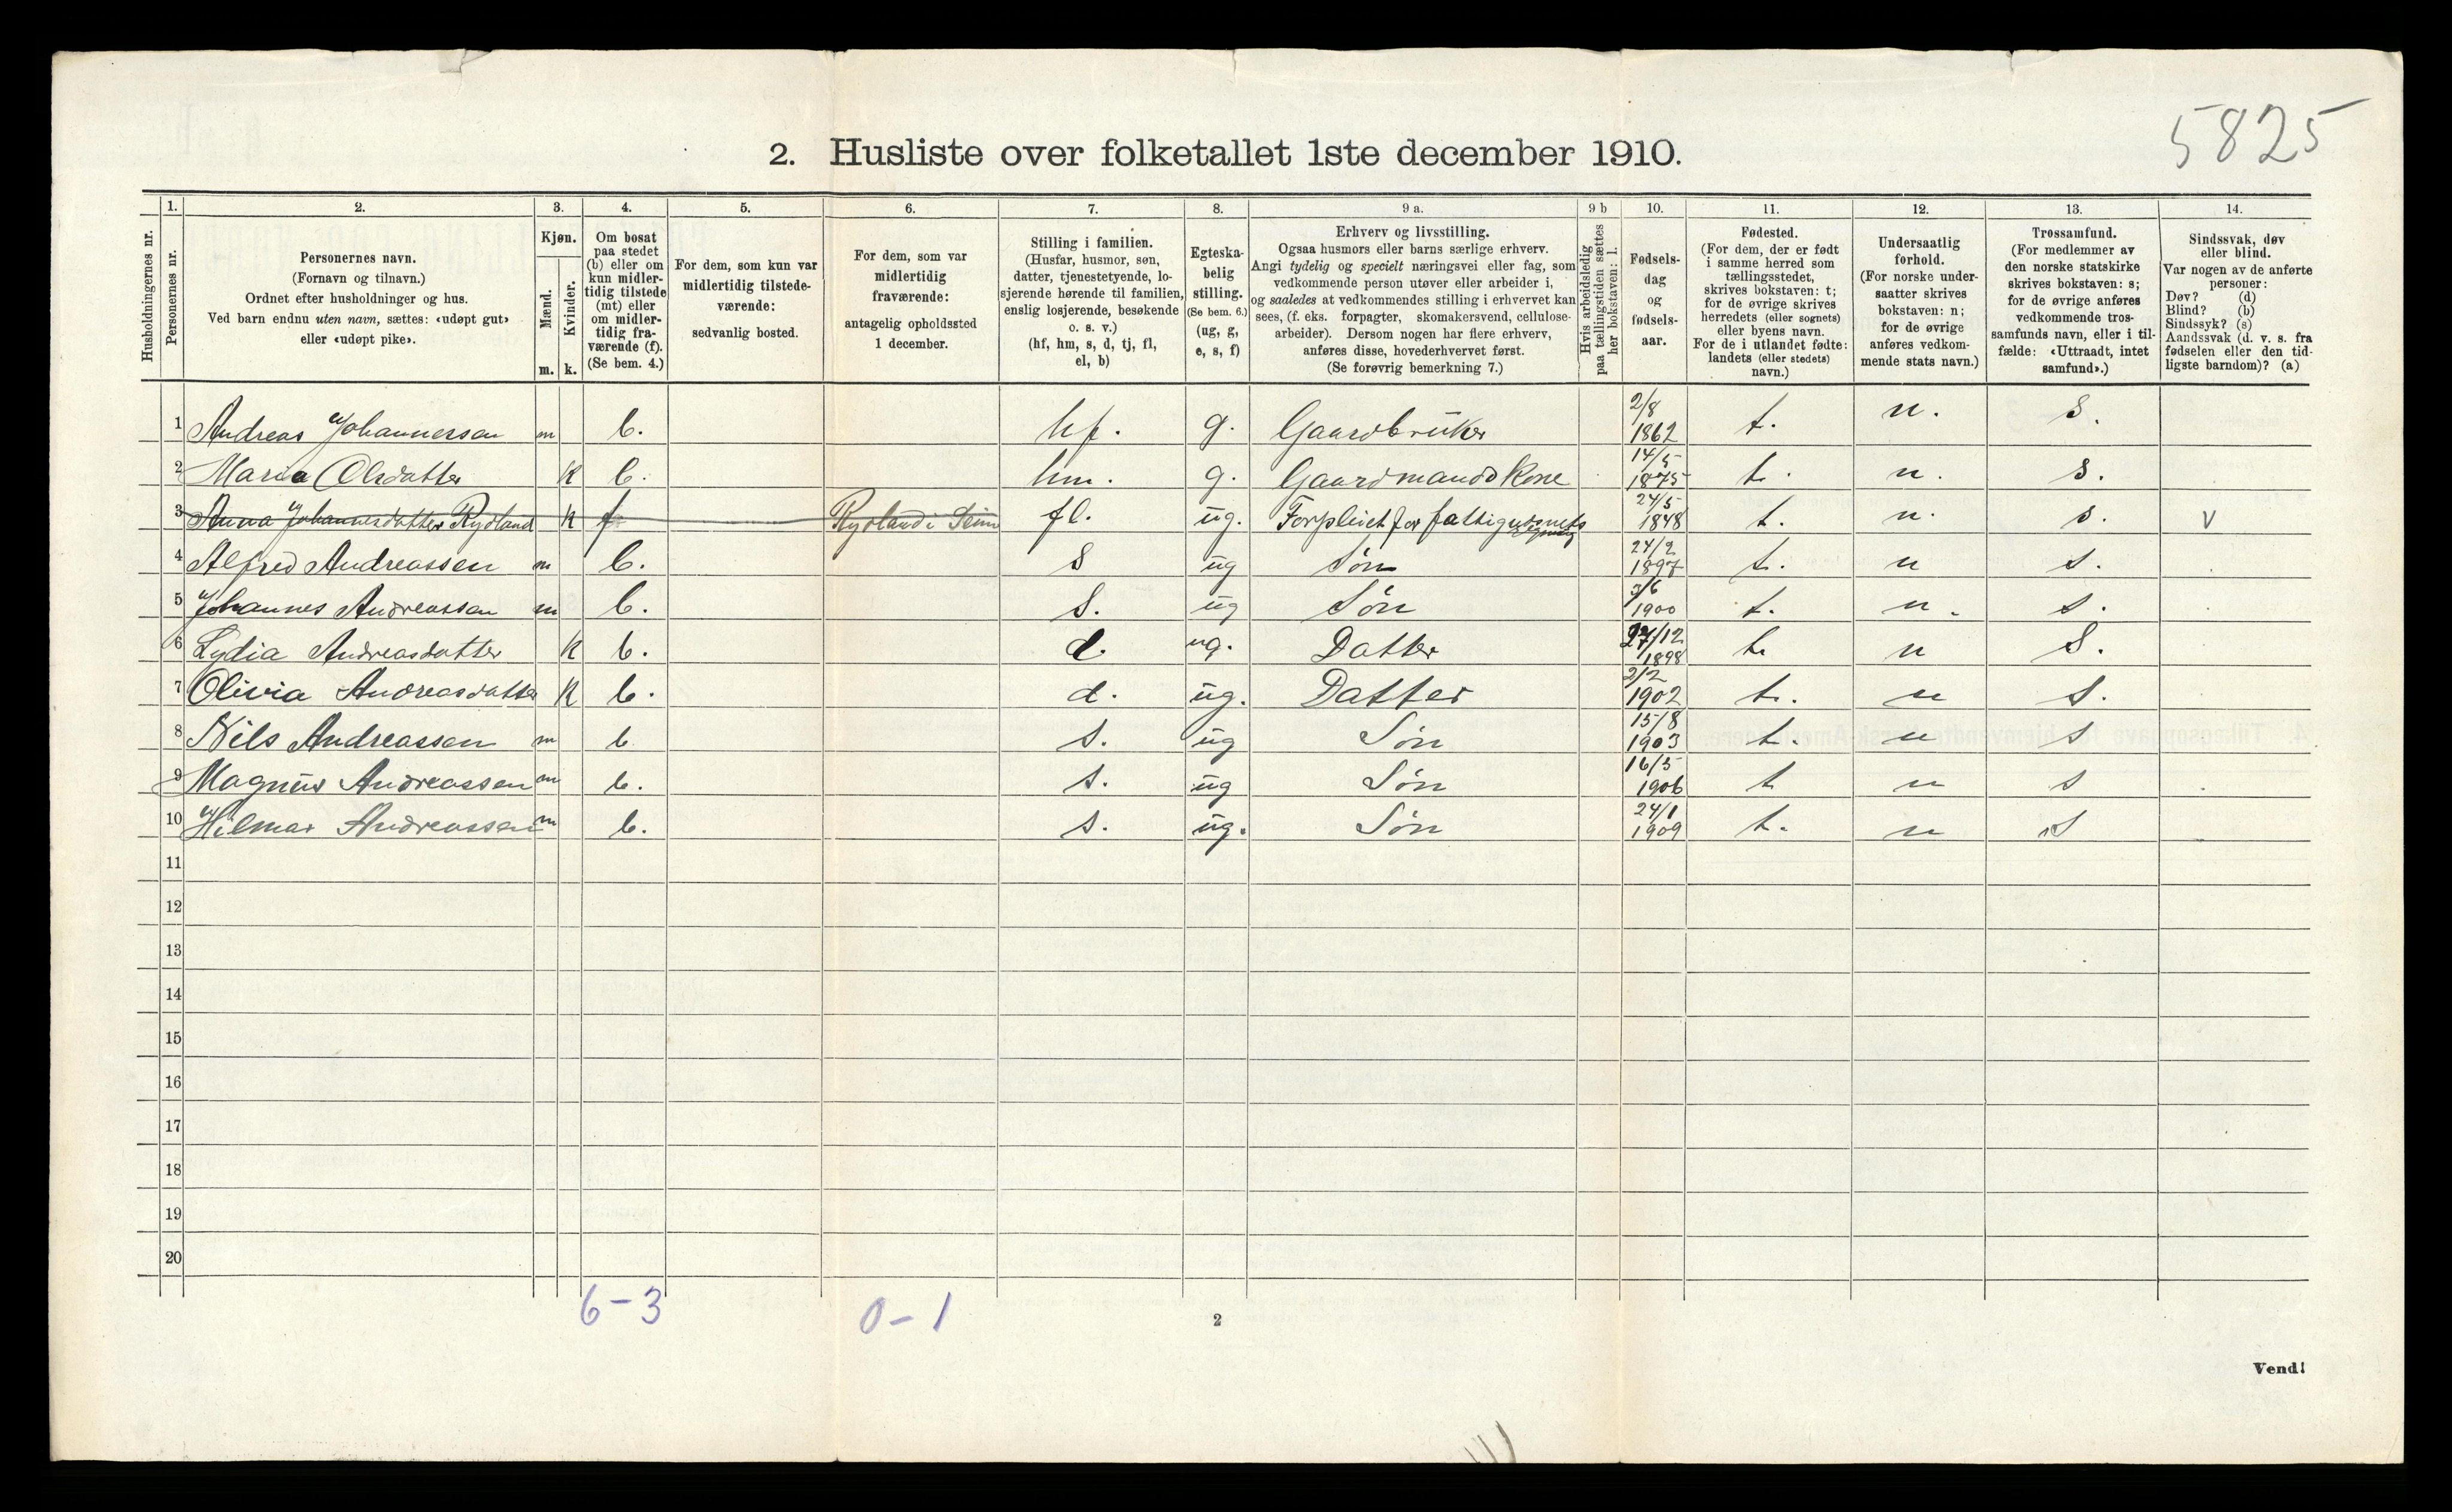 5825
2. Husliste over folketallet 1ste december 1910.
Husholdningernes nr.
1.
Personernes nr.
2.
Personernes navn.
(Fornavn og tilnavn.)
Ordnet efter husholdninger og hus.
Ved barn endnu uten navn, sættes: «udøpt gut»
eller «udøpt pike».
3.
Kjøn.
Mænd.
Kvinder.
m. k.
4.
Om bosat
paa stedet
(b) eller om
kun midler-
tidig tilstede
(mt) eller
om midler-
tidig fra-
værende (f).
(Se bem. 4.)
5.
For dem, som kun var
midlertidig tilstede-
værende:
sedvanlig bosted.
6.
For dem, som var
midlertidig
fraværende:
antagelig opholdssted
1 december.
7.
Stilling i familien.
(Husfar, husmor, søn,
datter, tjenestetyende, lo-
sjerende hørende til familien,
enslig losjerende, besøkende
o. s. v.)
(hf, hm, s, d, tj, fl,
el, b)
8.
Egteska-
belig
stilling.
(Se bem. 6.)
(ug, g,
e, s, f)
9 a.
Erhverv og livsstilling.
Ogsaa husmors eller barns særlige erhverv.
Angi tydelig og specielt næringsvei eller fag, som
vedkommende person utøver eller arbeider i,
og saaledes at vedkommendes stilling i erhvervet kan
sees, (f. eks. forpagter, skomakersvend, cellulose-
arbeider). Dersom nogen har flere erhverv,
anføres disse, hovederhvervet først.
(Se forøvrig bemerkning 7.)
9 b
Hvis arbeidsledig
paa tællingstiden sættes
her bokstaven: l.
10.
Fødsels-
dag
og
fødsels-
aar.
11.
Fødested.
(For dem, der er født
i samme herred som
tællingsstedet,
skrives bokstaven: t;
for de øvrige skrives
herredets (eller sognets)
eller byens navn.
For de i utlandet fødte:
landets (eller stedets)
navn.)
12.
Undersaatlig
forhold.
(For norske under-
saatter skrives
bokstaven: n;
for de øvrige
anføres vedkom-
mende stats navn.)
13.
Trossamfund.
(For medlemmer av
den norske statskirke
skrives bokstaven: s;
for de øvrige anføres
vedkommende tros-
samfunds navn, eller i til-
fælde: «Uttraadt, intet
samfund».)
14.
Sindssvak, døv
eller blind.
Var nogen av de anførte
personer:
Døv? (d)
Blind? (b)
Sindssyk? (s)
Aandssvak (d. v. s. fra
fødselen eller den tid-
ligste barndom)? (a)
1 Andreas Johannessen m b. hf. g. Gaardbruker 2/8 1862 t. n. s.
2 Maria Olsdatter k b. hm. g. Gaardmands Kone 14/5 1875 t. n. s.
3 Anna Johannesdatter Rydland k f Rydland i Seim fl. ug. Forpleiet for fattigvæsnets regning 24/5 1848 t. n. s. v
4 Alfred Andreassen m b. s ug Søn 24/2 1897 t. n s.
5 Johannes Andreassen m b. s. ug Søn 3/6 1900 t. n. s.
6 Lydia Andreasdatter k b. d. ug. Datter 27/12 1898 t. n s.
7 Olivia Andreasdatter k b. d. ug. Datter 2/2 1902 t. n s.
8 Nils Andreassen m b s. ug Søn 15/8 1903 t. n s
9 Magnus Andreassen m b. s. ug Søn 16/5 1906 t n s
10 Hilmar Andreassen m b. s. ug. Søn 24/1 1909 t. n s
11
12
13
14
15
16
17
18
19
20
6-3
0-1
2
Vend!